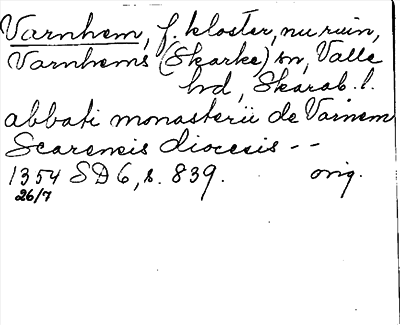 Varnhem, f. kloster, nu ruin,
Varnhems (Skarke) sn, Valle
hd, Skarab. l.
abbati monasterii de Varnem
Scarensis diocesis --
1354 SD 6, s. 839. orig.
26/7